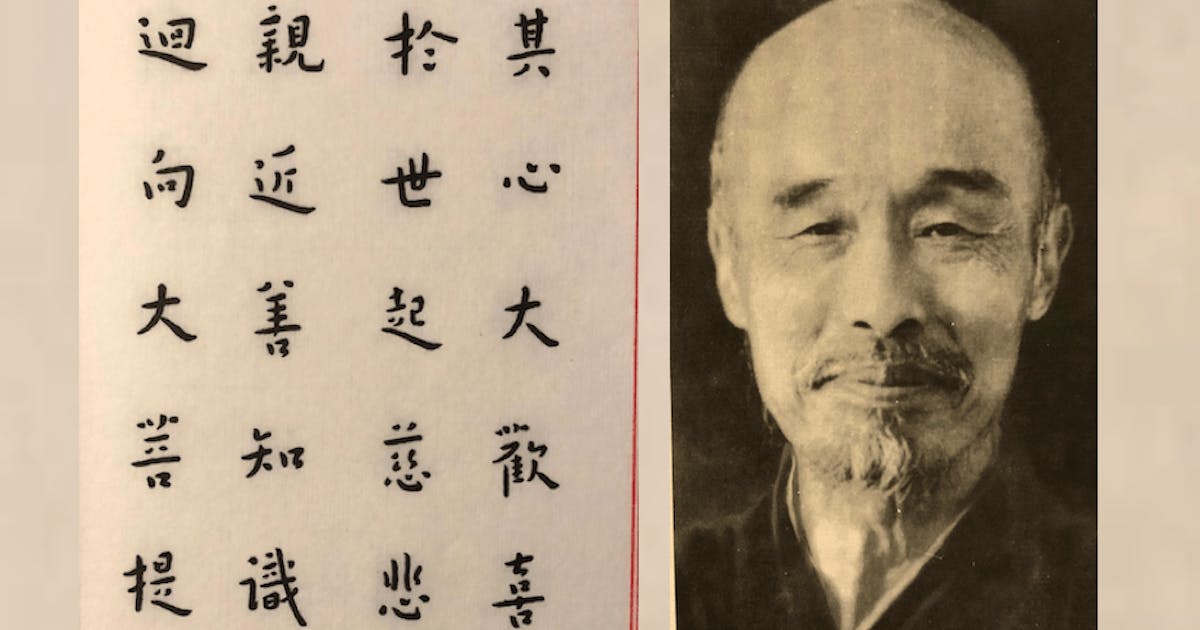 其心大歡喜
於世起慈悲
親近善知識
迴向大菩提